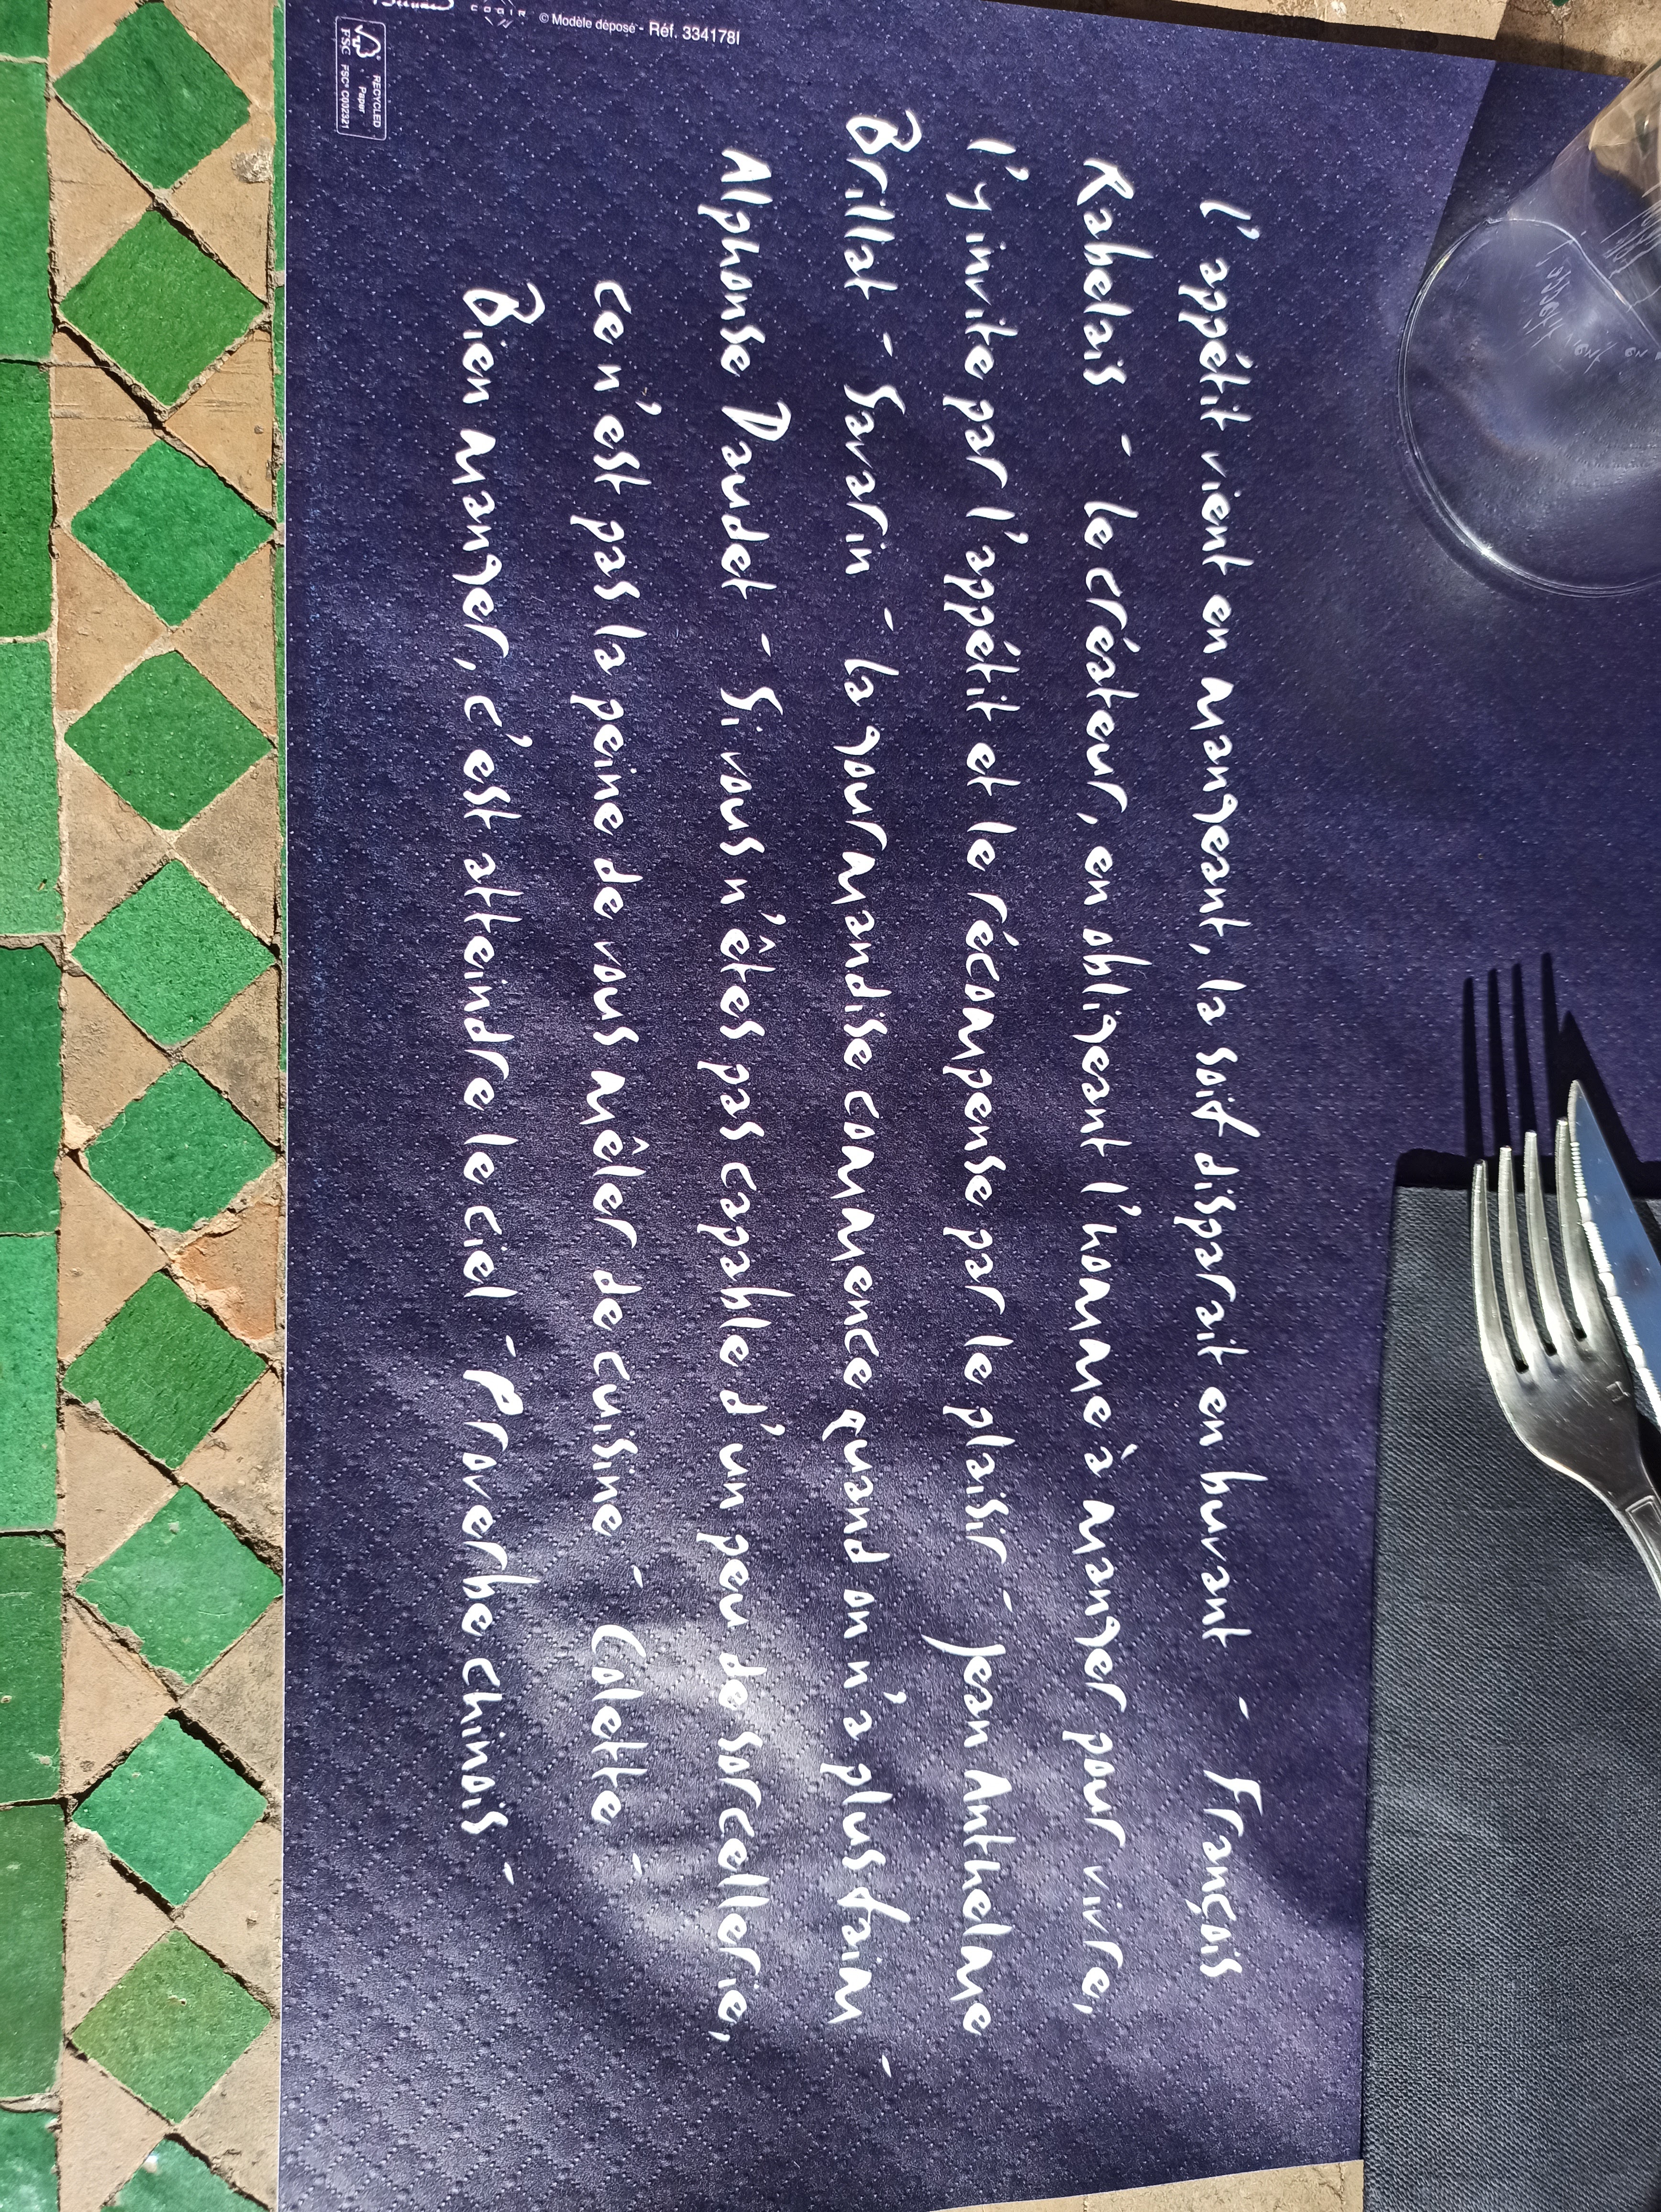 l'appétit vient en mangeant, la soif disparait en buvant - François
Rabelais - le créateur, en obligeant l'homme à manger pour vivre,
l'y invite par l'appétit et le récompense par le plaisir - Jean Anthelme
Brillat - Savarin - la gourmandise commence quand on n'a plus faim -
Alphonse Daudet - Si vous n'êtes pas capable d'un peu de sorcellerie,
ce n'est pas la peine de vous mêler de cuisine - Colette -
Bien manger, c'est atteindre le ciel - Proverbe chinois -
COGIR
© Modèle déposé - Réf. 334178I
RECYCLED
Paper
FSC® C002321
FSC